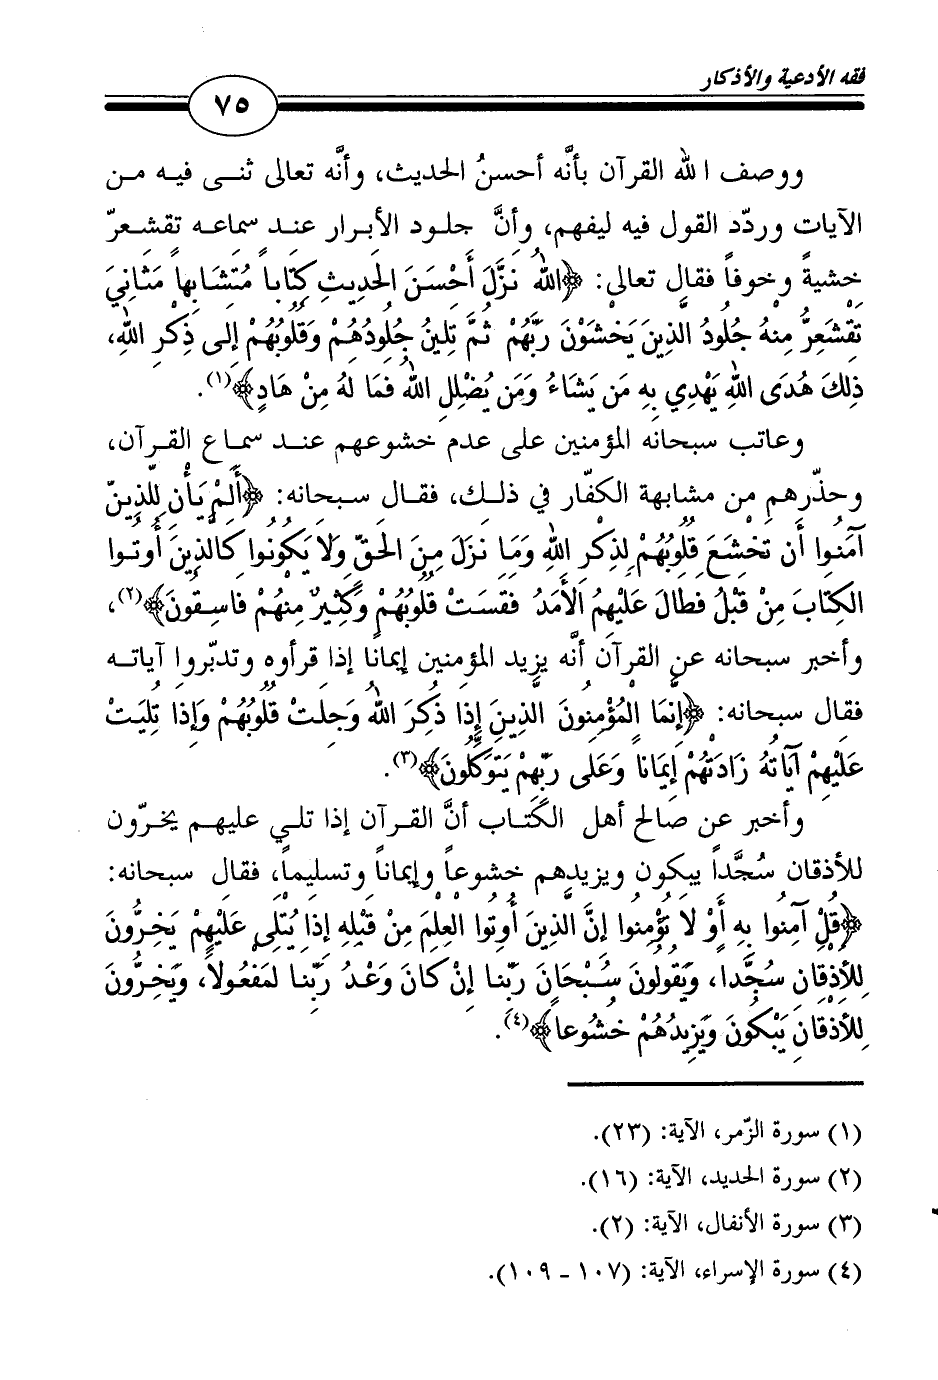 فقه الأدعية والأذكار
٧٥
ووصف الله القرآن بأنَّه أحسنُ الحديث، وأنَّه تعالى ثنى فيه من
الآيات وردّد القول فيه ليفهم، وأنَّ جلود الأبرار عند سماعه تقشعرّ
خشيةً وخوفاً فقال تعالى: ﴿اللهُ نَزَّلَ أَحْسَنَ الحَدِيثِ كِتَاباً مُتَشَابِهاً مَثَانِيَ
تَقْشَعِرُّ مِنْهُ جُلُودُ الَّذِينَ يَخْشَوْنَ رَبَّهُمْ ثُمَّ تَلِينُ جُلُودُهُمْ وَقُلُوبُهُمْ إِلَى ذِكْرِ اللهِ،
ذَلِكَ هُدَى اللهِ يَهْدِي بِهِ مَن يَشَاءُ وَمَن يُضْلِلِ اللهُ فَمَا لَهُ مِنْ هَادٍ﴾(١).
وعاتب سبحانه المؤمنين على عدم خشوعهم عند سماع القرآن،
وحذّرهم من مشابهة الكفّار في ذلك، فقال سبحانه: ﴿أَلَمْ يَأْنِ لِلَّذِينَ
آمَنُوا أَن تَخْشَعَ قُلُوبُهُمْ لِذِكْرِ اللهِ وَمَا نَزَلَ مِنَ الحَقِّ وَلاَ يَكُونُوا كَالَّذِينَ أُوتُوا
الكِتَابَ مِنْ قَبْلُ فَطَالَ عَلَيْهِمُ الأَمَدُ فَقَسَتْ قُلُوبُهُمْ وَكَثِيرٌ مِنْهُمْ فَاسِقُونَ﴾(٢)،
وأخبر سبحانه عن القرآن أنَّه يزيد المؤمنين إيمانًا إذا قرأوه وتدبّروا آياته
فقال سبحانه: ﴿إِنَّمَا المُؤْمِنُونَ الَّذِينَ إِذَا ذُكِرَ اللهُ وَجِلَتْ قُلُوبُهُمْ وَإِذَا تُلِيَتْ
عَلَيْهِمْ آيَاتُهُ زَادَتْهُمْ إِيمَاناً وَعَلَى رَبِّهِمْ يَتَوَكَّلُونَ﴾(٣).
وأخبر عن صالح أهل الكتاب أنَّ القرآن إذا تلي عليهم يخرّون
للأذقان سُجَّداً يبكون ويزيدهم خشوعاً وإيماناً وتسليماً، فقال سبحانه:
﴿قُلْ آمِنُوا بِهِ أَوْ لاَ تُؤْمِنُوا إِنَّ الَّذِينَ أُوتُوا العِلْمَ مِنْ قَبْلِهِ إِذَا يُتْلَى عَلَيْهِمْ يَخِرُّونَ
لِلأَذْقَانِ سُجَّدا، وَيَقُولُونَ سُبْحَانَ رَبِّنا إِنْ كَانَ وَعْدُ رَبِّنا لَمَفْعُولاً، وَيَخِرُّونَ
لِلأَذْقَانِ يَبْكُونَ وَيَزِيدُهُمْ خُشُوعاً﴾(٤).
(١) سورة الزّمر، الآية: (٢٣).
(٢) سورة الحديد، الآية: (١٦).
(٣) سورة الأنفال، الآية: (٢).
(٤) سورة الإسراء، الآية: (١٠٧ ـ ١٠٩).